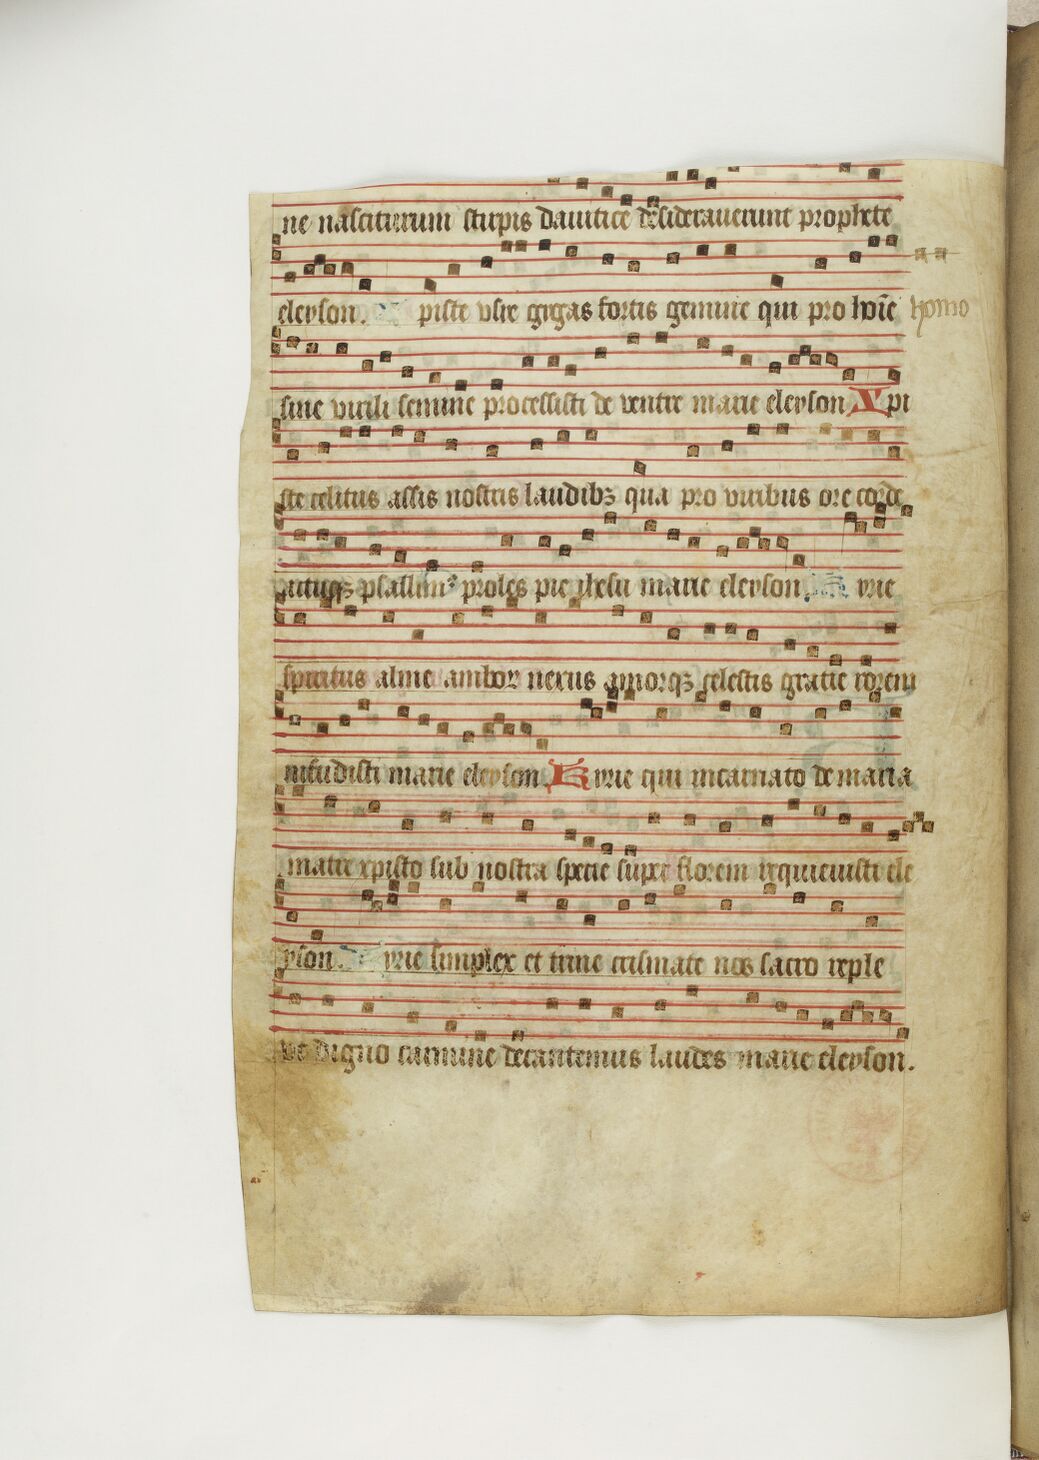 ne nasciturum stirpis davitice desideraverunt prophete
eleyson. piste vsie gygas fortis gemine qui pro hoīe homo
sine virili semine processisti de ventre marie eleyson Xpi
ste celitus assis nostris laudibꝫ qua pro viribus ore corde
psallim⁹ proles pie yhesu marie eleyson. yrie
spiritus alme amboꝝ nexus amorqꝫ celestis gratie rorem
infudisti marie eleyson. Kyrie qui incarnato de maria
matre xpisto sub nostra specie super florem requieuisti ele
yson. yrie simplex et trine crismate nos sacro reple
vt digno carmine decantemus laudes marie eleyson.